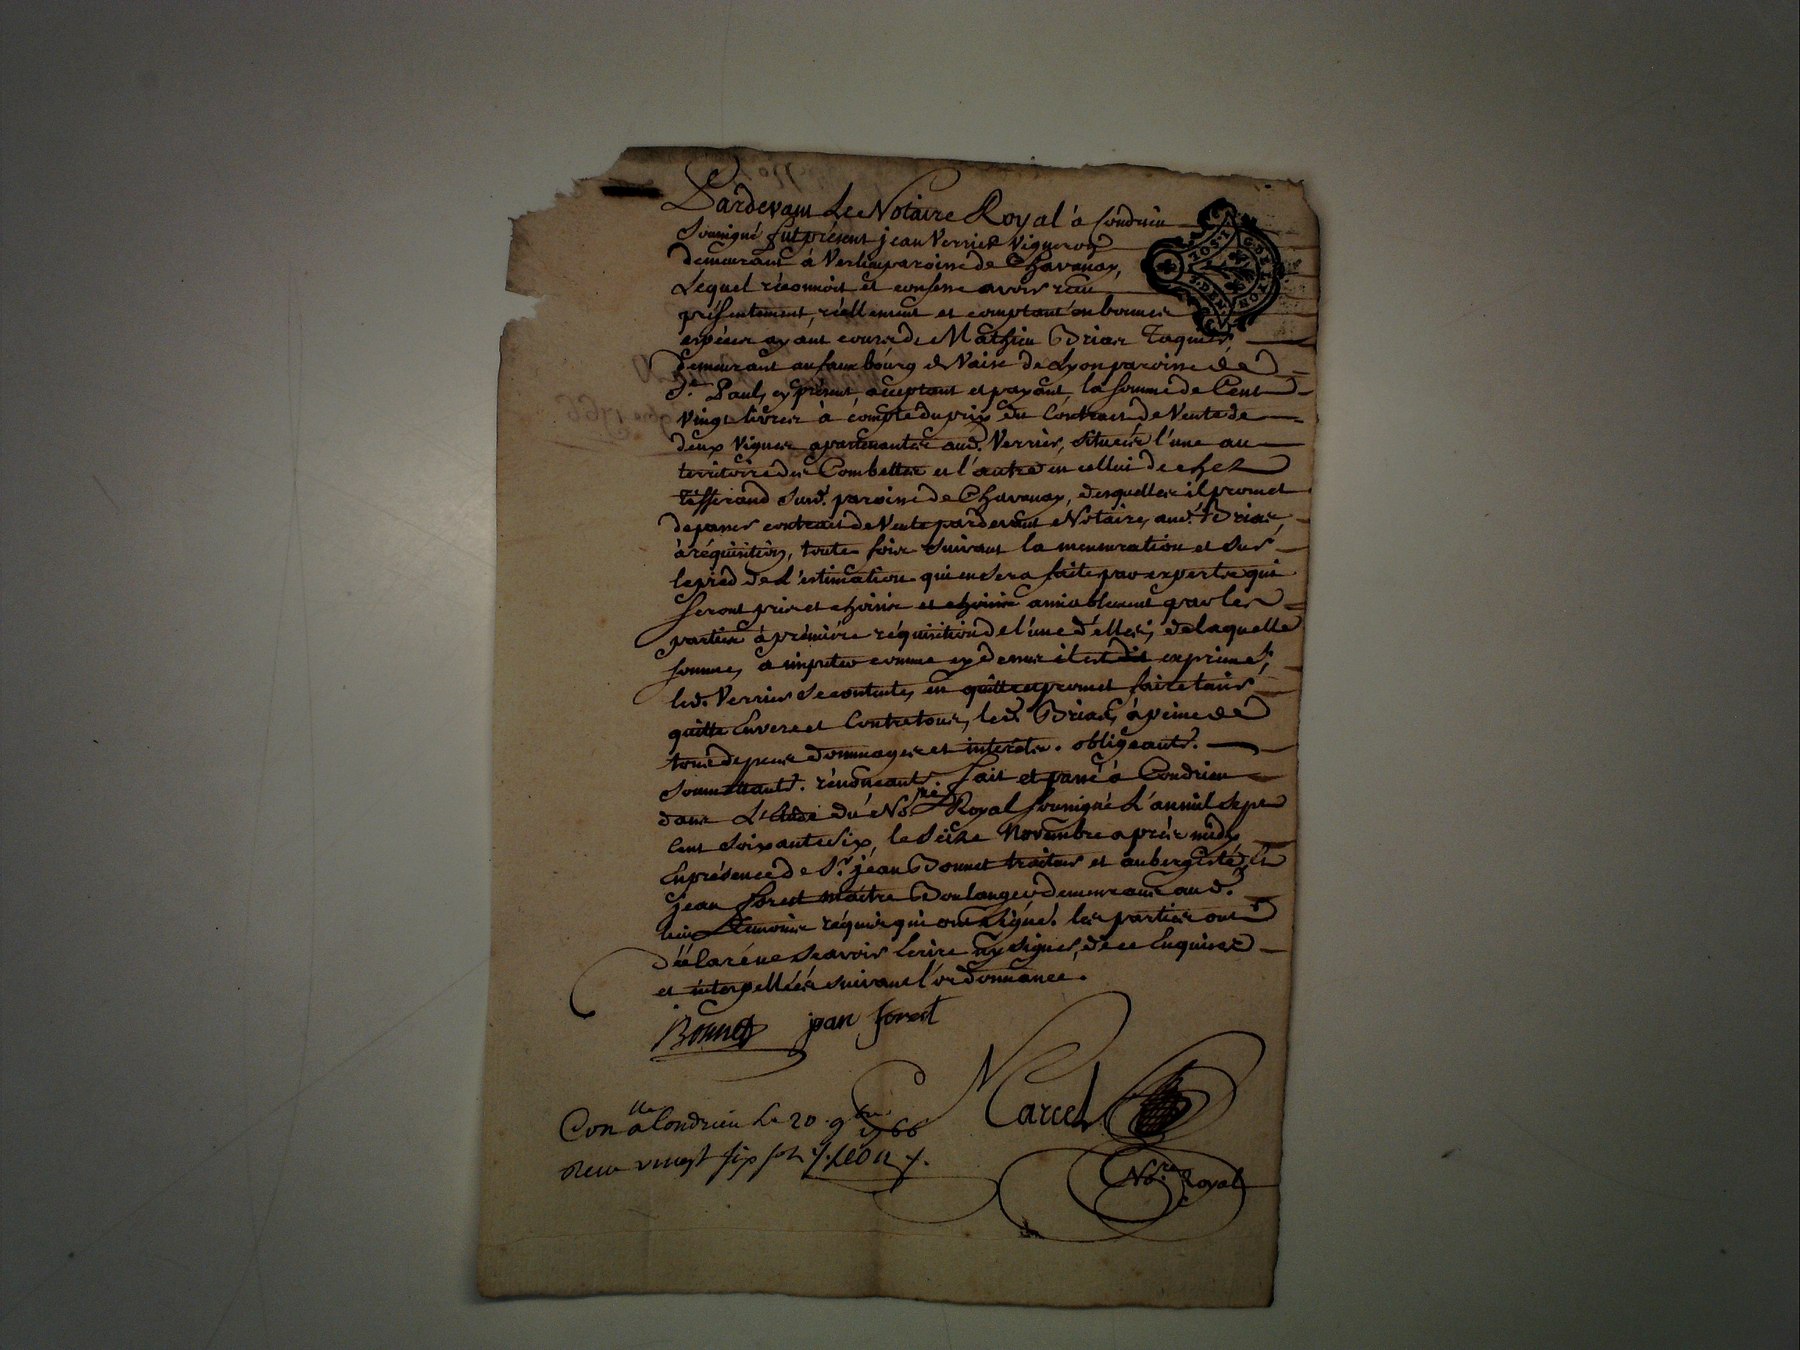 Pardevant Le Notaire Royal à Condrieu
Soussigné fut présent jean Verrier Vigneron
demeurant à Verlieu paroisse de Chavanay,
Lequel réconnoit et confesse avoir réçu
présentement, réellement et comptant en bonnes
espèces ayant cours de Mathieu Brias
demeurant au faux bourg de Vaise de Lyon paroisse de
St. Paul, cy présent acceptant et payant, la somme de Cent
Vingt livres à compte du prix du Contract de Vente de
deux Vignes apartenantes aud. Verrier, situées l'une au
territoire des Combettes et l'autre en cellui de chez
Tésserand Susd. paroisse de Chavanay, desquelles il promet
de passer contract de Vente pardevant Notaire, aud. Brias,
à réquisition, toute fois suivant la mensuration et sur
le pied de L'estimation qui en sera faite par experts qui
seront pris et choisis et choisis amiablement par les
parties à prémière réquisition de l'une d'elles; de laquelle
somme, à imputer comme cy dessus il est dit exprimé,
led. Verrier se contente, en quitte et promet faire tenir
quitte Envers et Contre tous, led. Brias, à peine de
tous dépens dommages et intérêts. obligeants.
Soumettants. rénonceants. Fait et passé à Condrieu
dans L'Etude du No.re Royal soussigné L'an mil sept
Cent soixante six, le seize Novembre après midy
En présence de Sr. jean Bonnet traiteur et aubergiste, Et
jean forest maitre Boulanger demeurants aud.
lieu témoins réquis qui ont signé. les parties ont
déclaré ne sçavoir Ecrire ny signer, de ce Enquises
et interpellées suivant l'ordonnance.
Bonnet jean forest
Marcel
Con.lle a Condrieu Le 20 9bre 1766
Reçu vingt six sols
No.re Royal